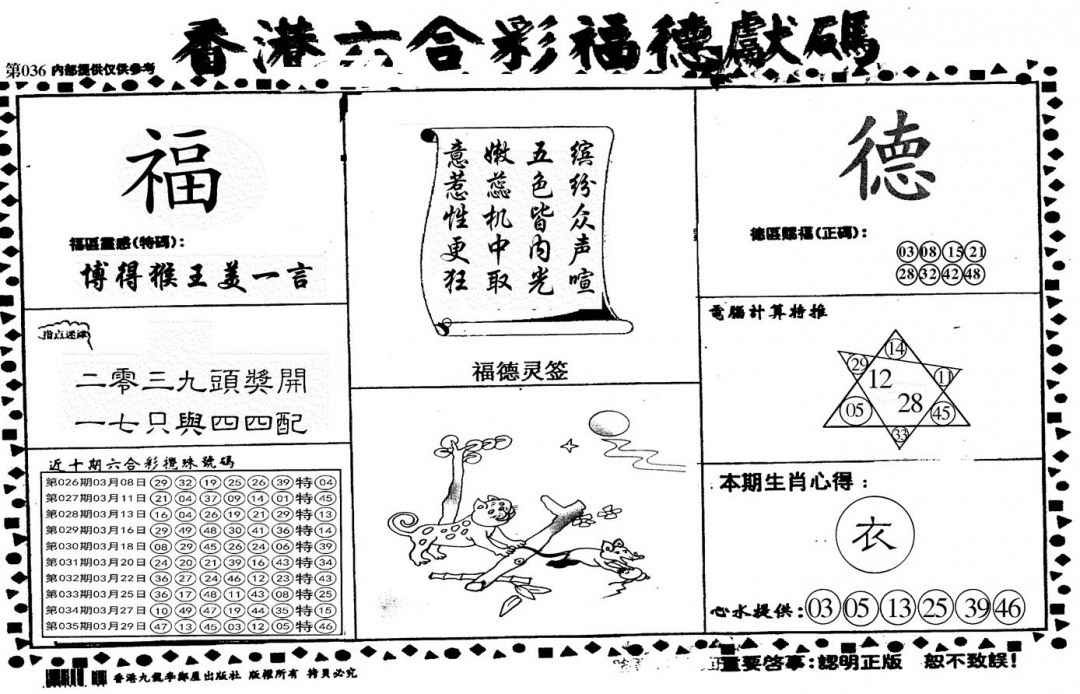 香港六合彩福德獻碼
第036 内部提供仅供参考
福
福區靈感(特碼):
博得猴王美一言
指点迷津
二零三九頭獎開
一七只與四四配
近十期六合彩攪珠號碼
第026期03月08日 29 32 19 25 26 39 特 04
第027期03月11日 21 04 37 09 14 01 特 45
第028期03月13日 16 04 26 19 21 29 特 13
第029期03月16日 29 49 48 30 41 36 特 14
第030期03月18日 08 29 45 26 24 06 特 39
第031期03月20日 24 20 21 39 16 43 特 34
第032期03月22日 36 27 24 46 12 23 特 43
第033期03月25日 36 17 48 11 43 08 特 25
第034期03月27日 10 49 47 19 44 35 特 15
第035期03月29日 47 13 45 03 12 05 特 46
缤纷众声喧
五色皆内光
嫩蕊机中取
意惹性更狂
福德灵签
德
德區賜福(正碼):
03 08 15 21
28 32 42 48
電腦計算特推
14
29
12
11
05
28
45
33
本期生肖心得:
衣
心水提供: 03 05 13 25 39 46
香港九龍李鄭屋出版社 版權所有 拷貝必究
重要啓事:認明正版 恕不致誤!